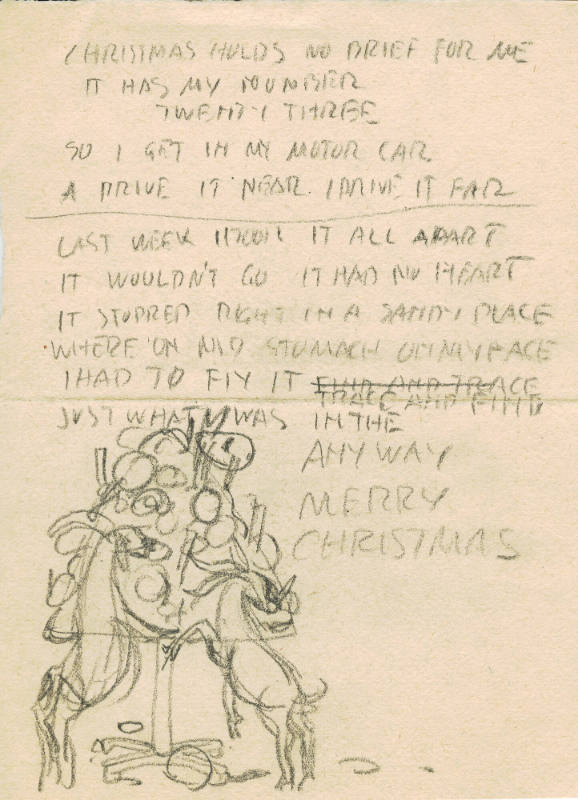 CHRISTMAS HOLDS NO BRIEF FOR ME
IT HAS MY NUMBER
TWENTY THREE
SO I GET IN MY MOTOR CAR
A DRIVE IT NEAR I DRIVE IT FAR
LAST WEEK I TOOK IT ALL APART
IT WOULDN'T GO IT HAD NO HEART
IT STOPPED RIGHT IN A SANDY PLACE
WHERE ON STOMACH ON MY FACE
I HAD TO FIX IT FIND AND TRACE
TRACE AND FIND
JUST WHAT WAS IN THE
ANY WAY
MERRY
CHRISTMAS